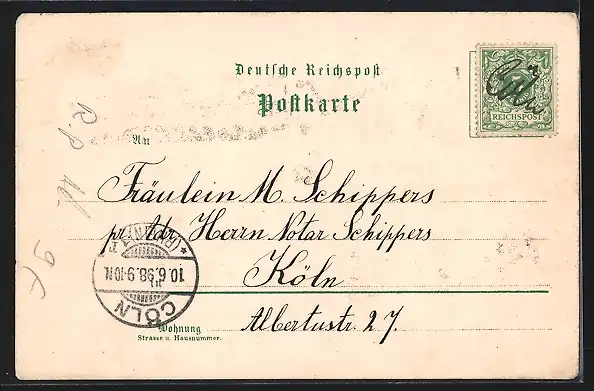 Deutsche Reichspost
Postkarte
An
Fräulein M. Schippers
pr. Adr. Herrn Notar Schippers
Köln
Albertustr. 27.
Wohnung
Strasse u. Hausnummer.
REICHSPOST
Cöln
CÖLN
10.6.98.9-10N.